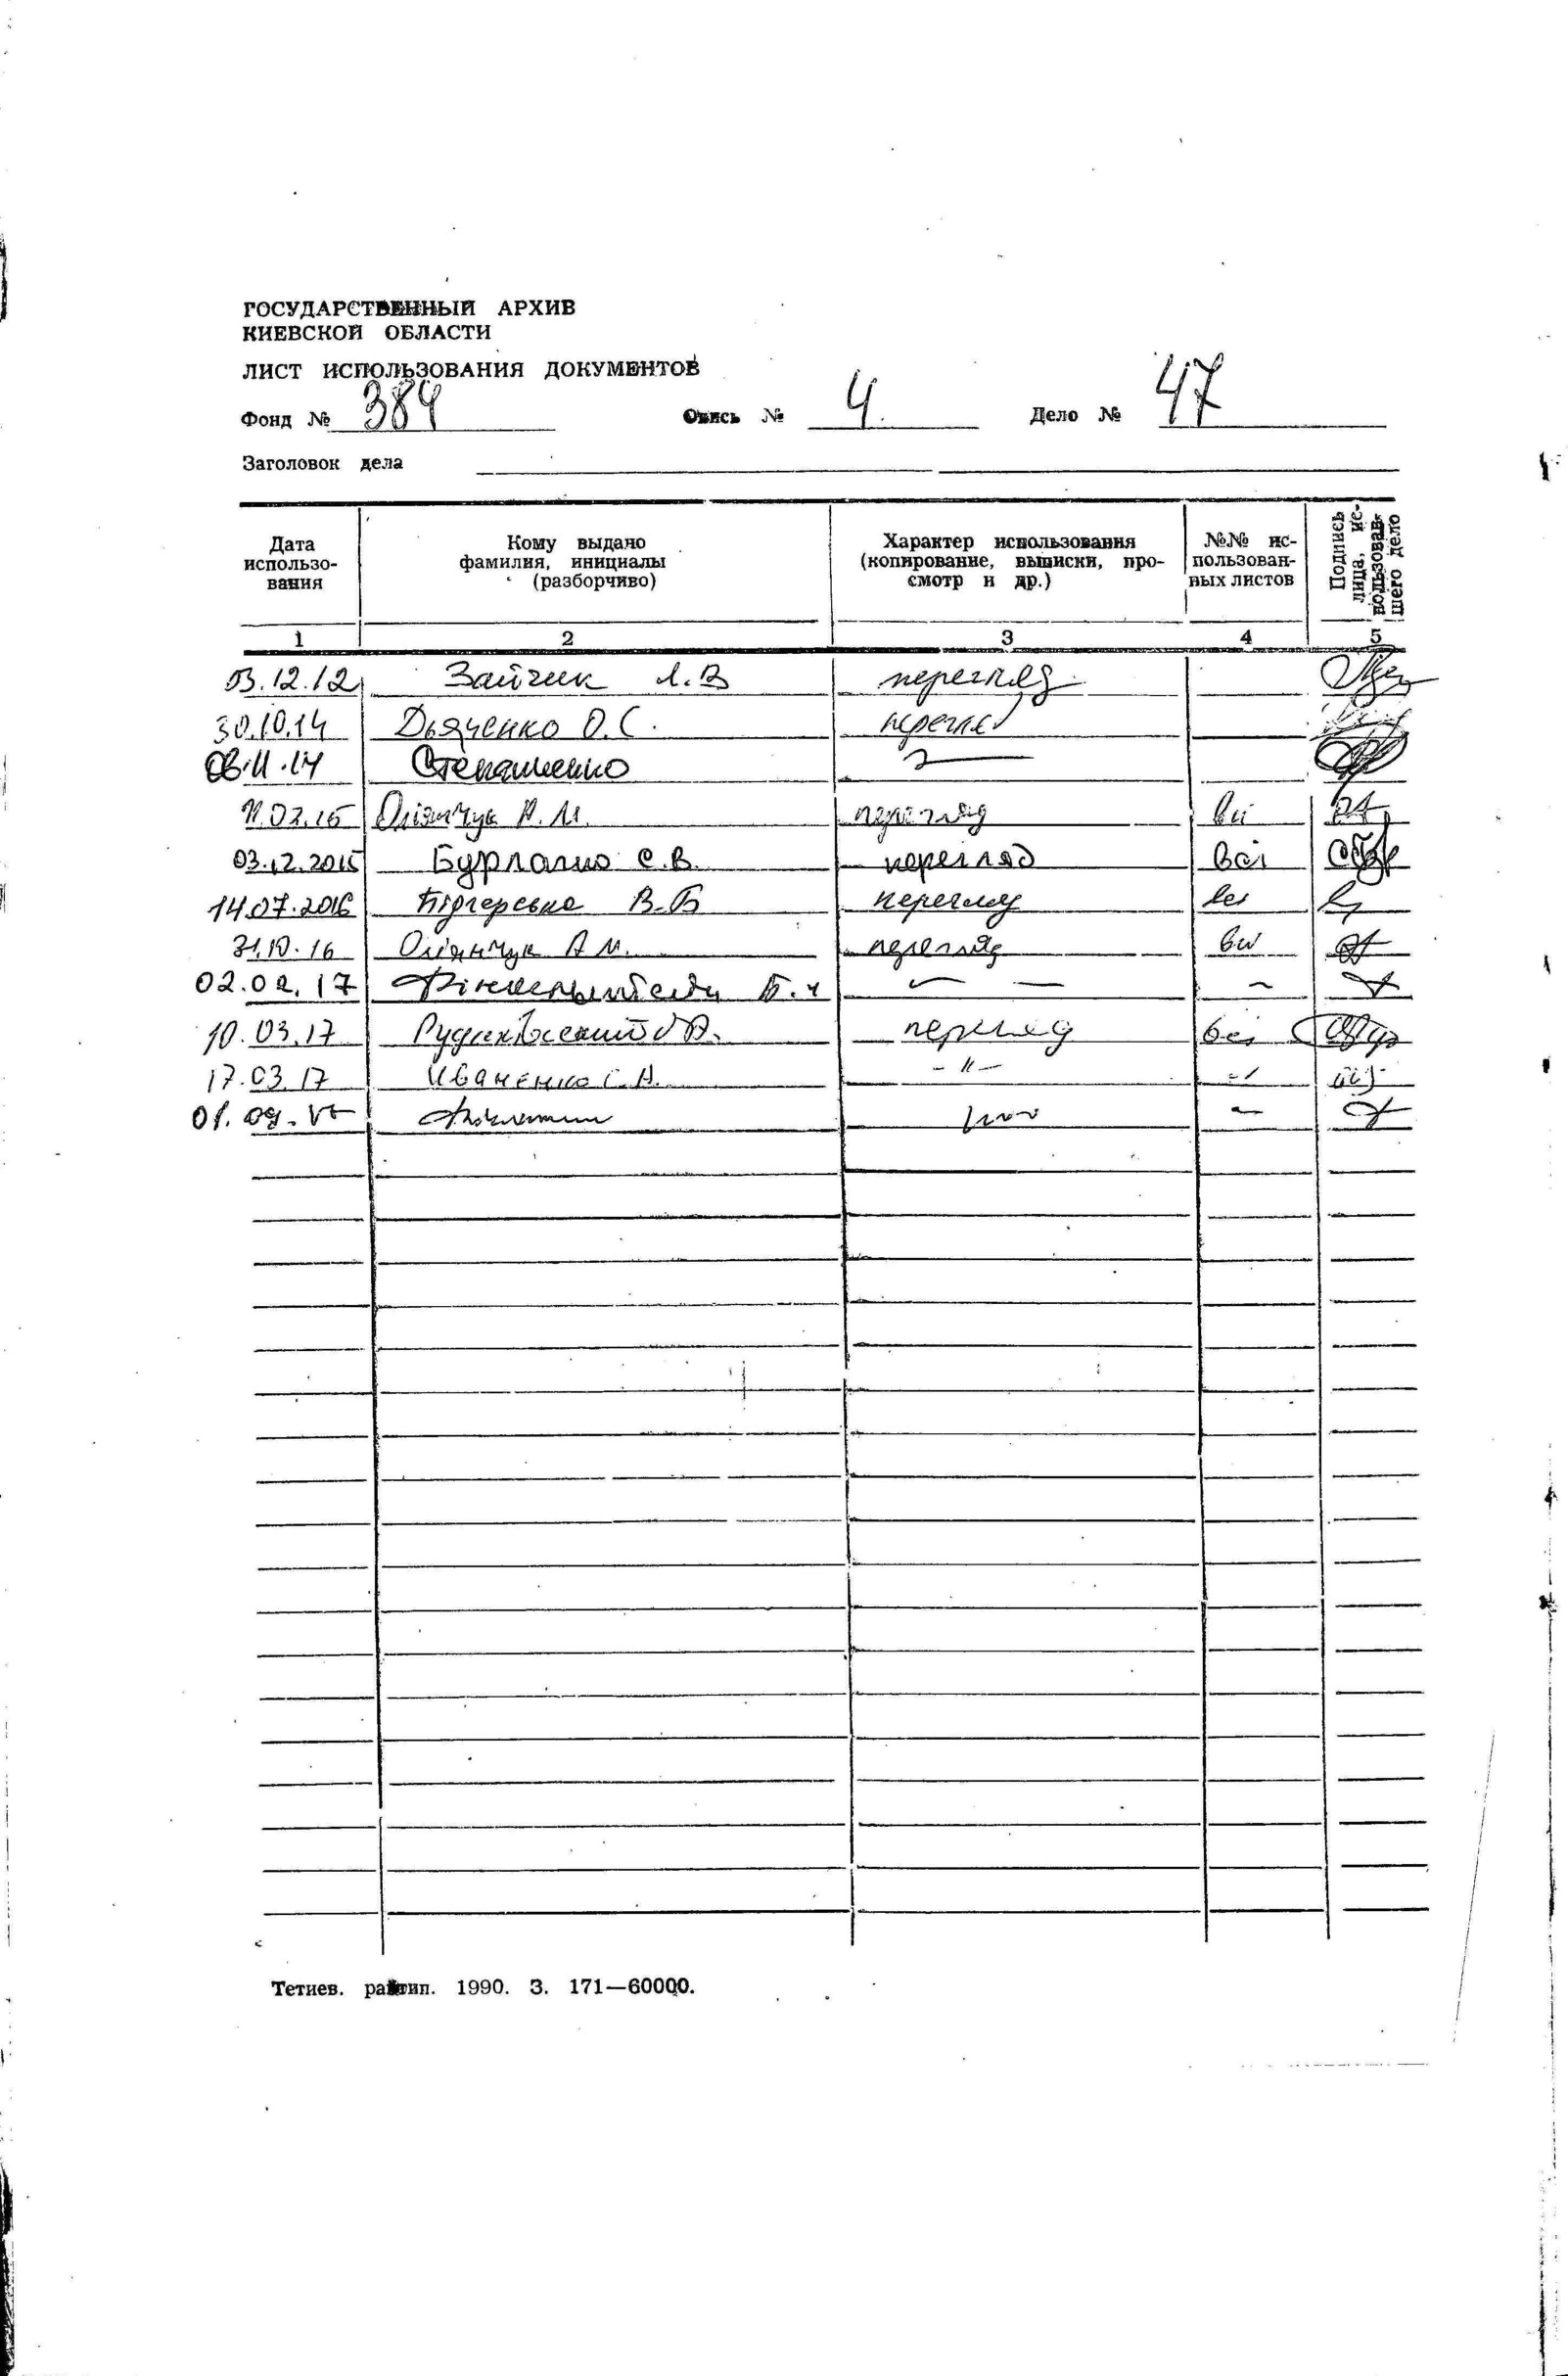 ГОСУДАРСТВЕННЫЙ АРХИВ
КИЕВСКОЙ ОБЛАСТИ
ЛИСТ ИСПОЛЬЗОВАНИЯ ДОКУМЕНТОВ
Фонд № 384 Опись № 4 Дело № 47
Заголовок дела
Дата использо-вания Кому выдано фамилия, инициалы (разборчиво) Характер использования (копирование, выписки, про-смотр и др.) №№ ис-пользован-ных листов Подпись лица, ис-пользовав-шего дело
1 2 3 4 5
03.12.12 Зайчик Л.В перегляд
30.10.14 Дьяченко О.С. перегляд
08.11.14 Степашенко
11.02.15 Оліянчук А.М. перегляд всі
03.12.2015 С.В. перегляд всі
14.07.2016 В.Б перегляд всі
31.10.16 Оліянчук А.М. перегляд всі
02.02.17
10.03.17 перегляд всі
17.03.17 Иваненко С.А. -"-
01.09.
Тетиев. райтип. 1990. З. 171—60000.